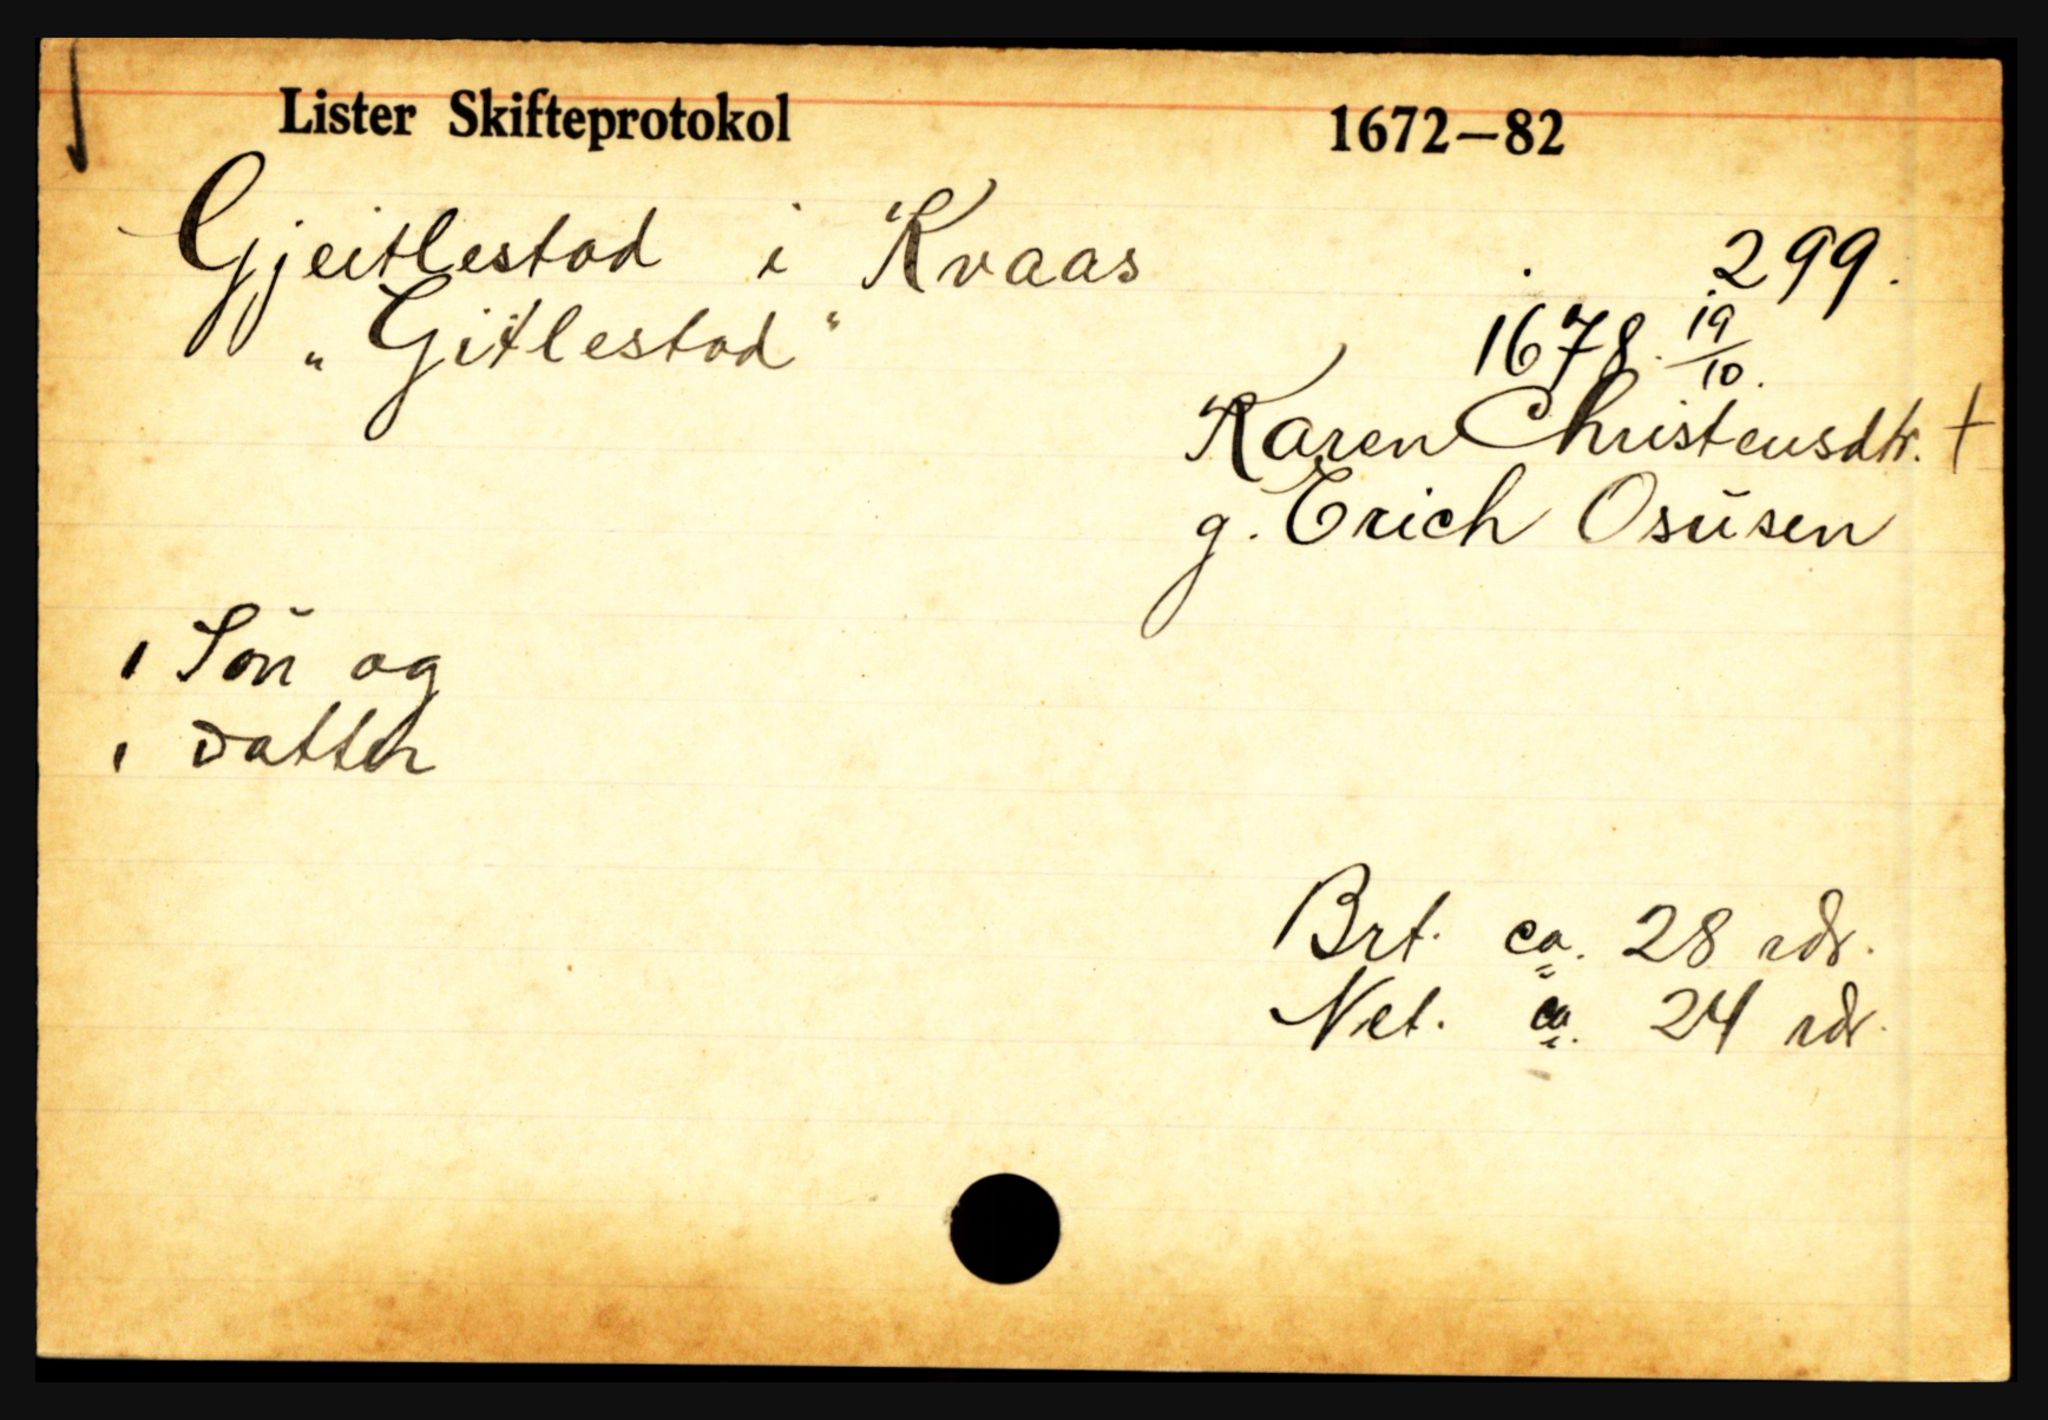 Lister Skifteprotokol 1672—82
Gjeitlestad i Kvaas 299.
"Gitlestad" 1678 19/10.
Karen Christensdtr. +
g. Erich Osŭsen
1 Søn og
1 datter
Brt. ca. 28 rdr.
Net. ca. 24 rdr.